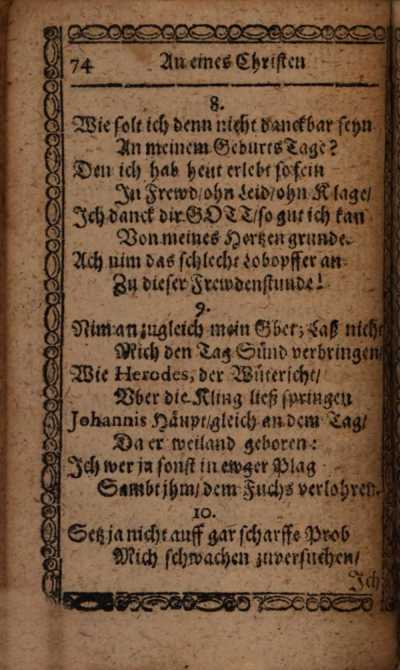 74 An eines Christen
8.
Wie solt ich denn nicht danckbar seyn
An meinem Geburts Tage?
Den ich hab heut erlebt so fein
In Frewd/ohn Leid/ohn Klage/
Ich danck dir GOTT/so gut ich kan
Von meines Hertzen grunde.
Ach nim das schlecht Lobopffer an
Zu dieser Frewdenstunde!
9.
Nim an zugleich mein Gbet; Laß nicht
Mich den Tag Sünd verbringen/
Wie Herodes, der Wütericht/
Vber die Kling ließ springen
Johannis Häupt/gleich an dem Tag/
Da er weiland geboren:
Ich wer ja sonst in ewger Plag
Sambt jhm/dem Fuchs verlohren.
10.
Setz ja nicht auff gar scharffe Prob
Mich schwachen zuversuchen/
Ich